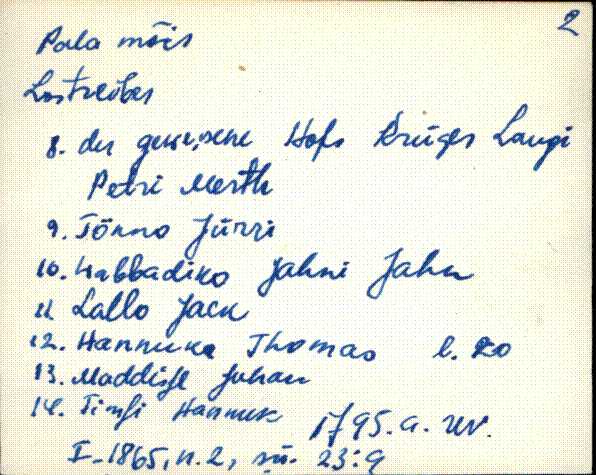 2
Pala mõis
Lostreiber
8. der gewesene Hofs Krüger Laugi
Petri Merth
9. Tönno Jürri
10. Wabbadiko Jahni Jahn
11. Lallo Jack
12. Hannuka Thomas l. 20
13. Maddisse Juhan
14. Timfi Hannuk
1795. a. rev.
I-1865, n. 2, sü. 23:9